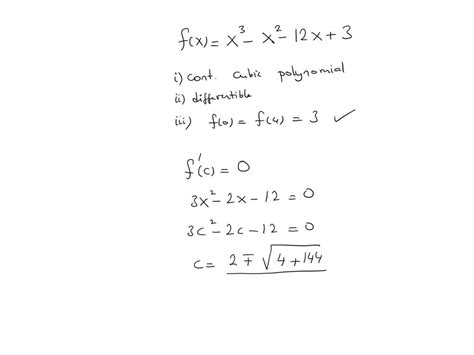 f(x) = x³ - x² - 12x + 3
i) cont. cubic polynomial
ii) differentible
iii) f(0) = f(4) = 3 ✓
f'(c) = 0
3x² - 2x - 12 = 0
3c² - 2c - 12 = 0
c = 2 ∓ √4 + 144